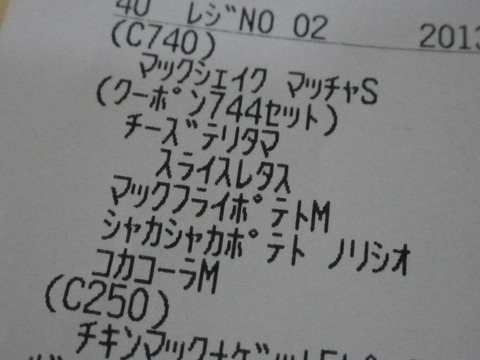 40 ﾚｼﾞNO 02 2013
(C740)
ﾏｯｸｼｪｲｸ ﾏｯﾁｬS
(ｸｰﾎﾟﾝ744ｾｯﾄ)
ﾁｰｽﾞﾃﾘﾀﾏ
ｽﾗｲｽﾚﾀｽ
ﾏｯｸﾌﾗｲﾎﾟﾃﾄM
ｼｬｶｼｬｶﾎﾟﾃﾄ ﾉﾘｼｵ
ｺｶｺｰﾗM
(C250)
ﾁｷﾝﾏｯｸﾅｹﾞｯﾄ